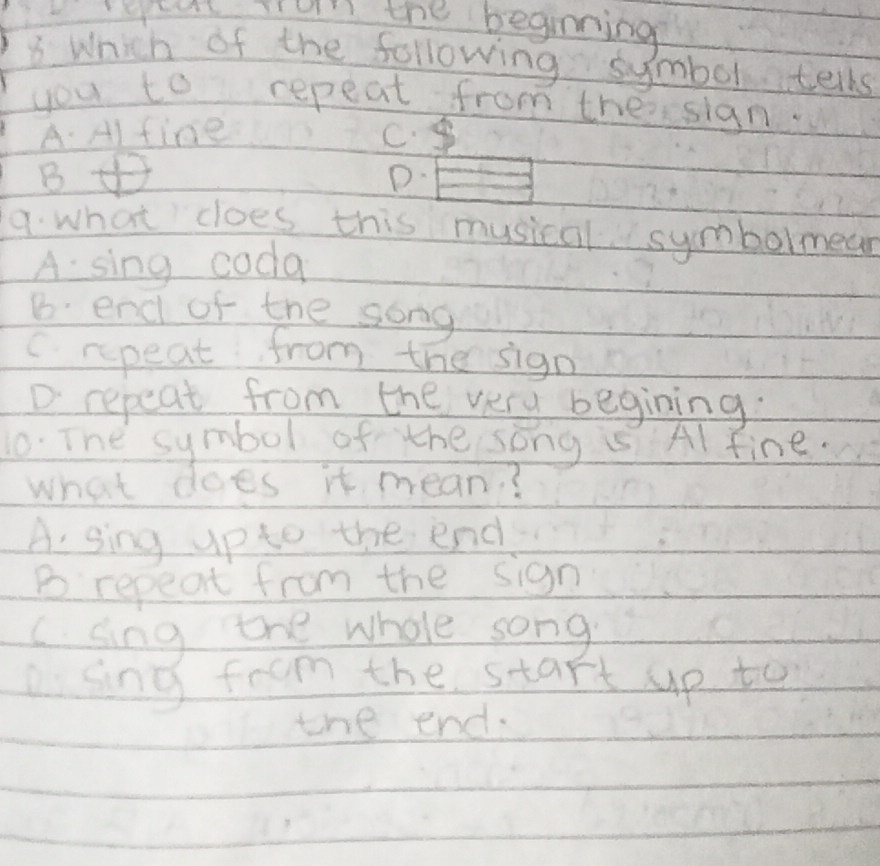 D repeat from the beginning
8 Which of the following symbol tells
you to repeat from the sign.
A. Al fine C. $
B D.
9. What does this musical symbol mean
A. sing coda
B. end of the song
C. repeat from the sign
D. repeat from the very begining.
10. The symbol of the song is Al fine.
What does it mean?
A. sing upto the end
B repeat from the sign
C. sing the whole song.
D. sing from the start up to
the end.